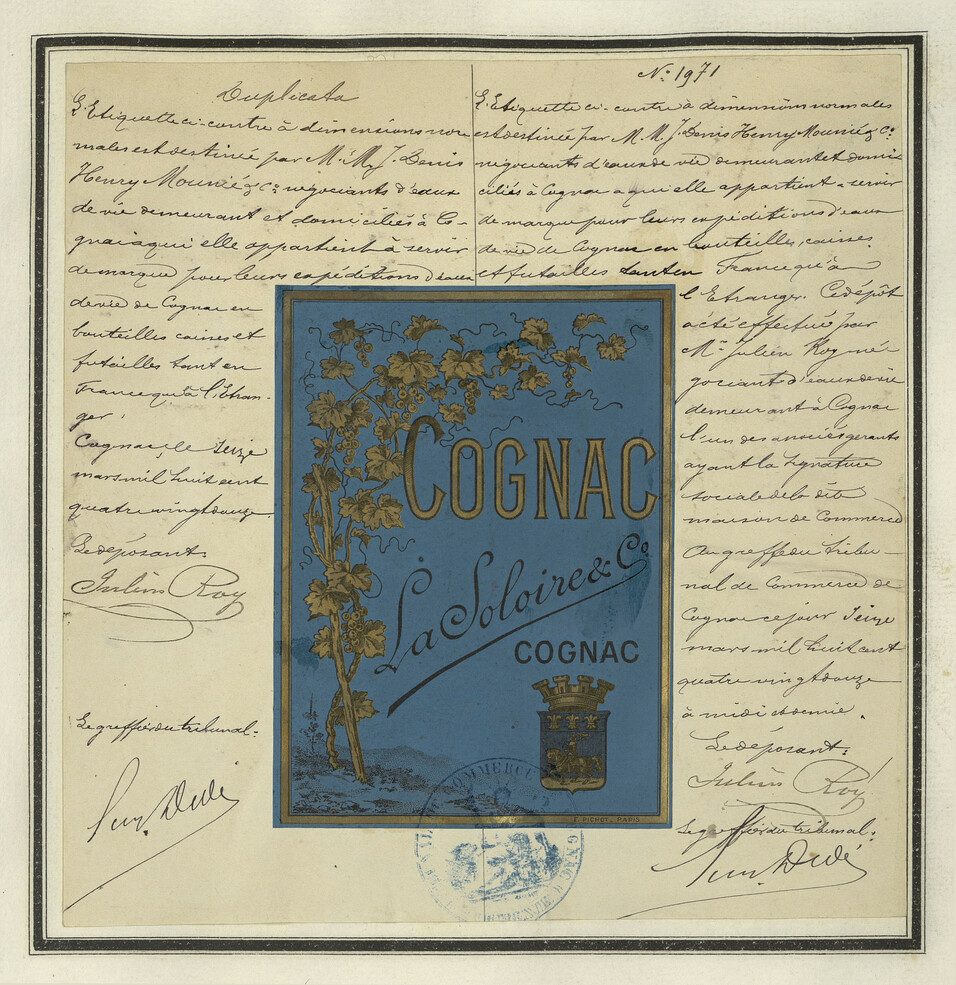 Duplicata
L'Etiquette ci-contre à dimensions nor-
males est destinée par M. M. J. Denis
Henry Mounié & Co négociants d'eaux
de vie demeurant et domiciliés à Co-
gnac à qui elle appartient à servir
de marque pour leurs expéditions d'eaux
de vie de Cognac en
bouteilles caisses et
futailles tant en
France qu'à l'Etran-
ger.
Cognac, le Seize
mars mil huit cent
quatre vingt douze.
Le déposant:
Julien Roy
Le greffier du tribunal:
No 1971
L'Etiquette ci-contre à dimensions normales
est destinée par M. M. J. Denis Henry Mounié & Co
négociants d'eaux de vie demeurant et domi-
ciliés à Cognac à qui elle appartient à servir
de marque pour leurs expéditions d'eaux
de vie de Cognac en bouteilles, caisses
et futailles tant en France qu'à
l'Etranger. Ce dépôt
a été effectué par
Mr Julien Roy né-
gociant d'eaux de vie
demeurant à Cognac
l'un des associés gérants
ayant la signature
sociale de la dite
maison de Commerce
Au greffe du tribu-
nal de Commerce de
Cognac ce jour Seize
mars mil huit cent
quatre vingt douze
à midi et demie.
Le déposant:
Julien Roy
Le greffier du tribunal:
COGNAC
La Soloire & Co
COGNAC
PICHOT, PARIS
COMMERCE